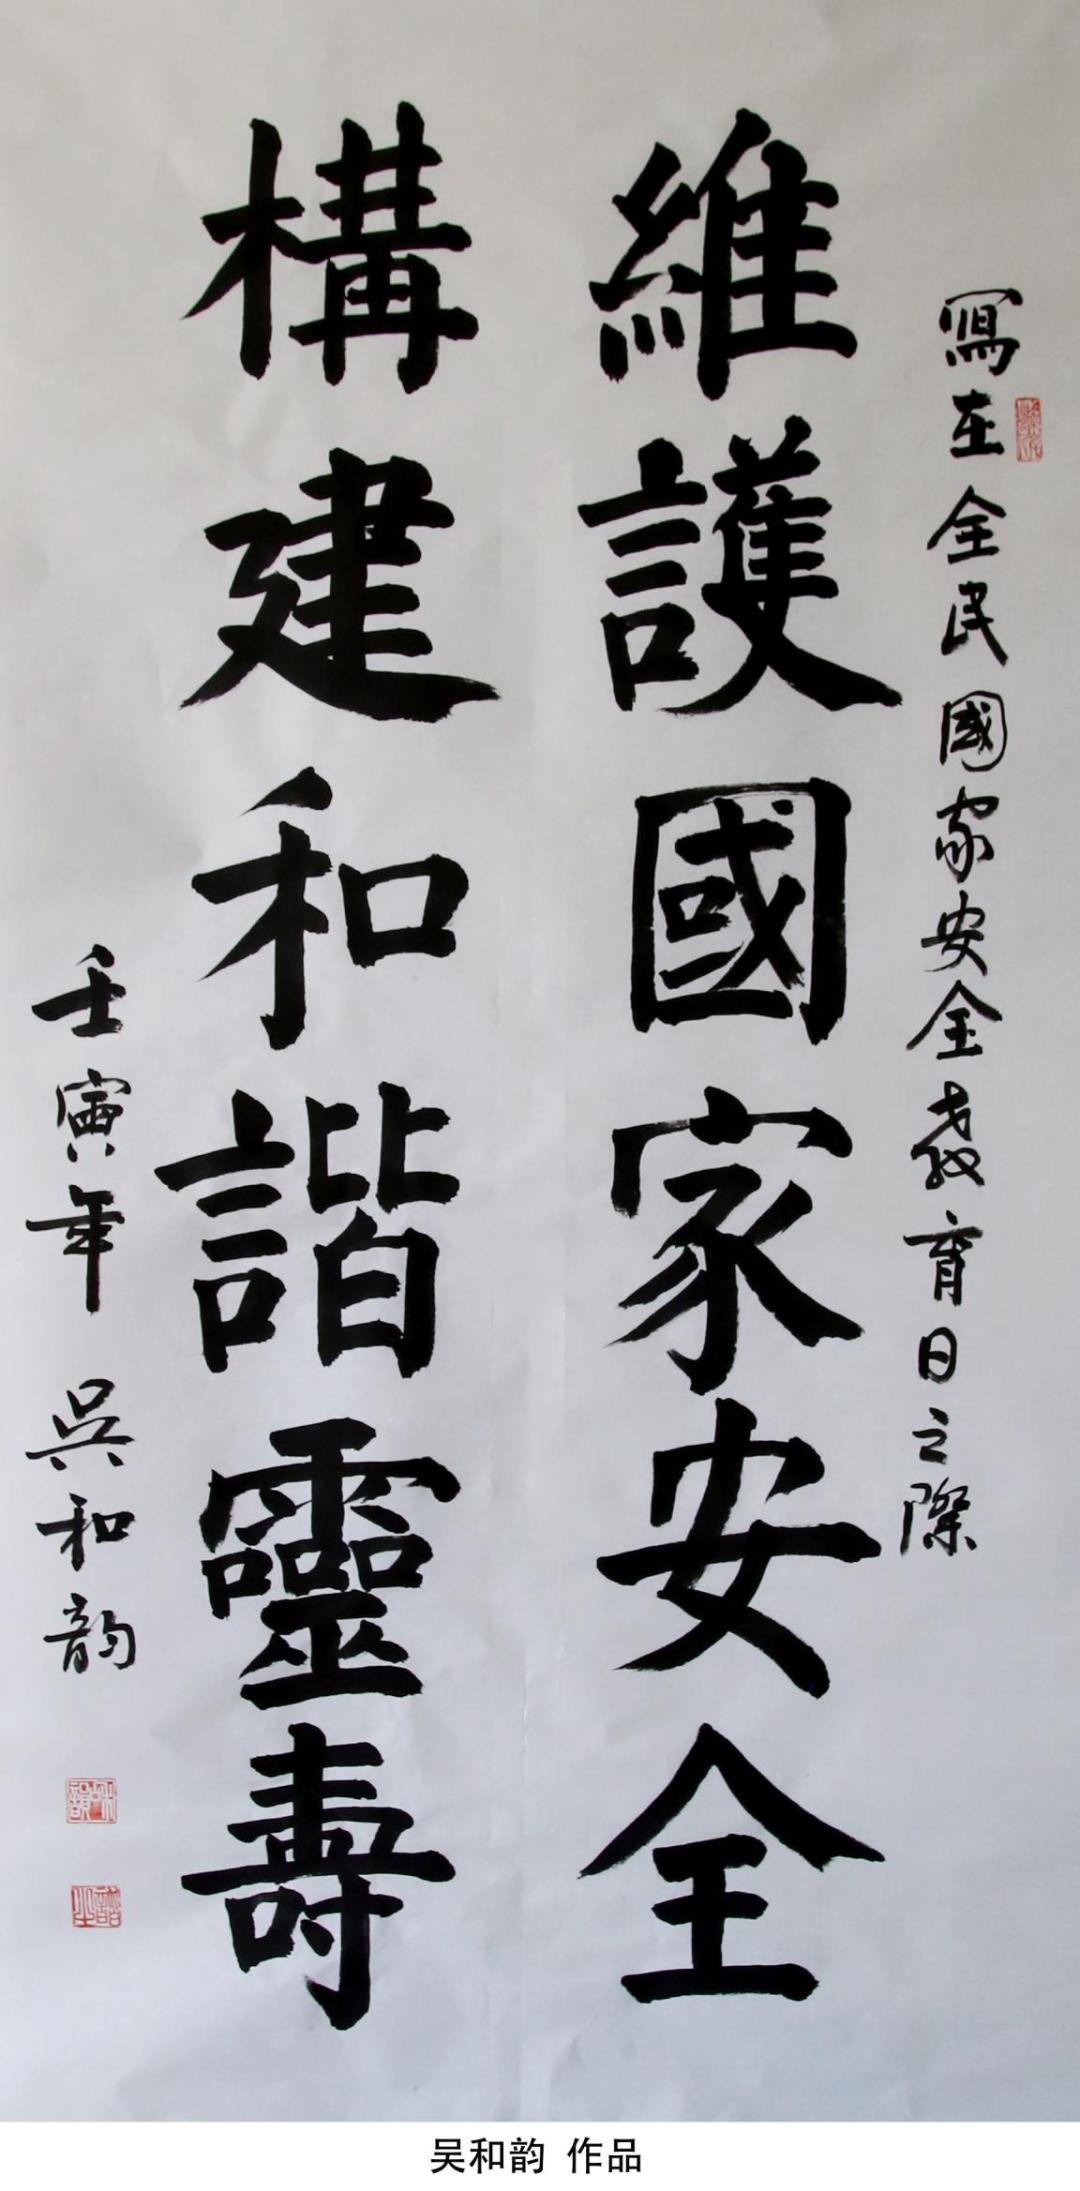 寫在全民國家安全教育日之際
維護國家安全
構建和諧靈壽
壬寅年 吳和韵
吴和韵 作品